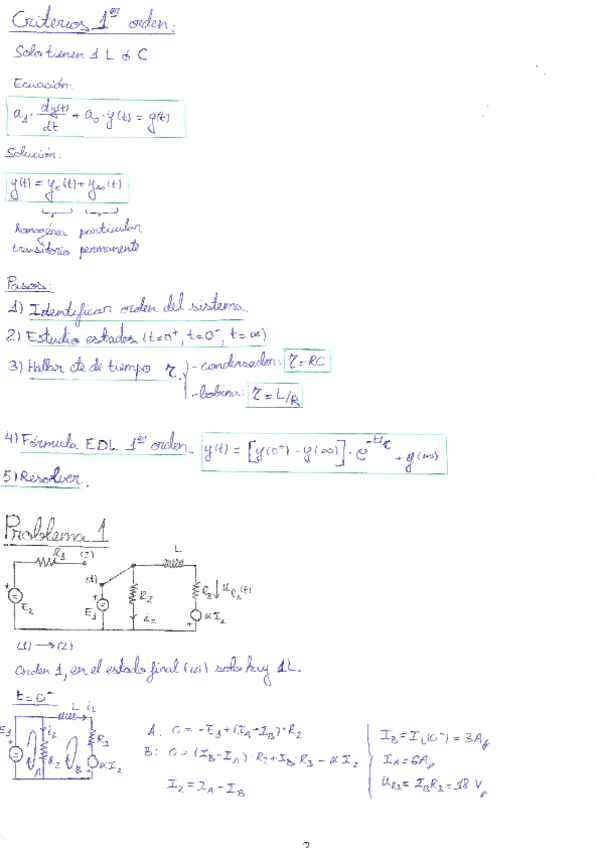 Criterios 1er orden:
Solo tienen 1 L ó C
Ecuación:
a₁ · dy(t)/dt + a₀ · y(t) = g(t)
Solución:
y(t) = y₀(t) + y∞(t)
homogénea particular
transitorio permanente
Pasos:
1) Identificar orden del sistema.
2) Estudio estados (t=0⁺, t=0⁻, t=∞)
3) Hallar cte de tiempo τ. - condensador: τ = RC
- bobina: τ = L/R
4) Fórmula EDL 1er orden. y(t) = [y(0⁺) - y(∞)] · e^(-t/τ) + y(∞)
5) Resolver.
Problema 1
R₁ (2) L
(1)
E₂ E₁ R₂ i₂ R₃ u_R₃(t) αI₂
(1) → (2)
Orden 1, en el estado final solo hay 1L.
t=0⁻
L i_L
E₁ i₂ R₂ R₃ αI₂ A B
A: 0 = -E₁ + (I_A - I_B) · R₂
B: 0 = (I_B - I_A) · R₂ + I_B R₃ - αI₂
I₂ = I_A - I_B
I_B = I_L(0⁻) = 3A
I_A = 6A
U_R3 = I_B R₃ = 18 V